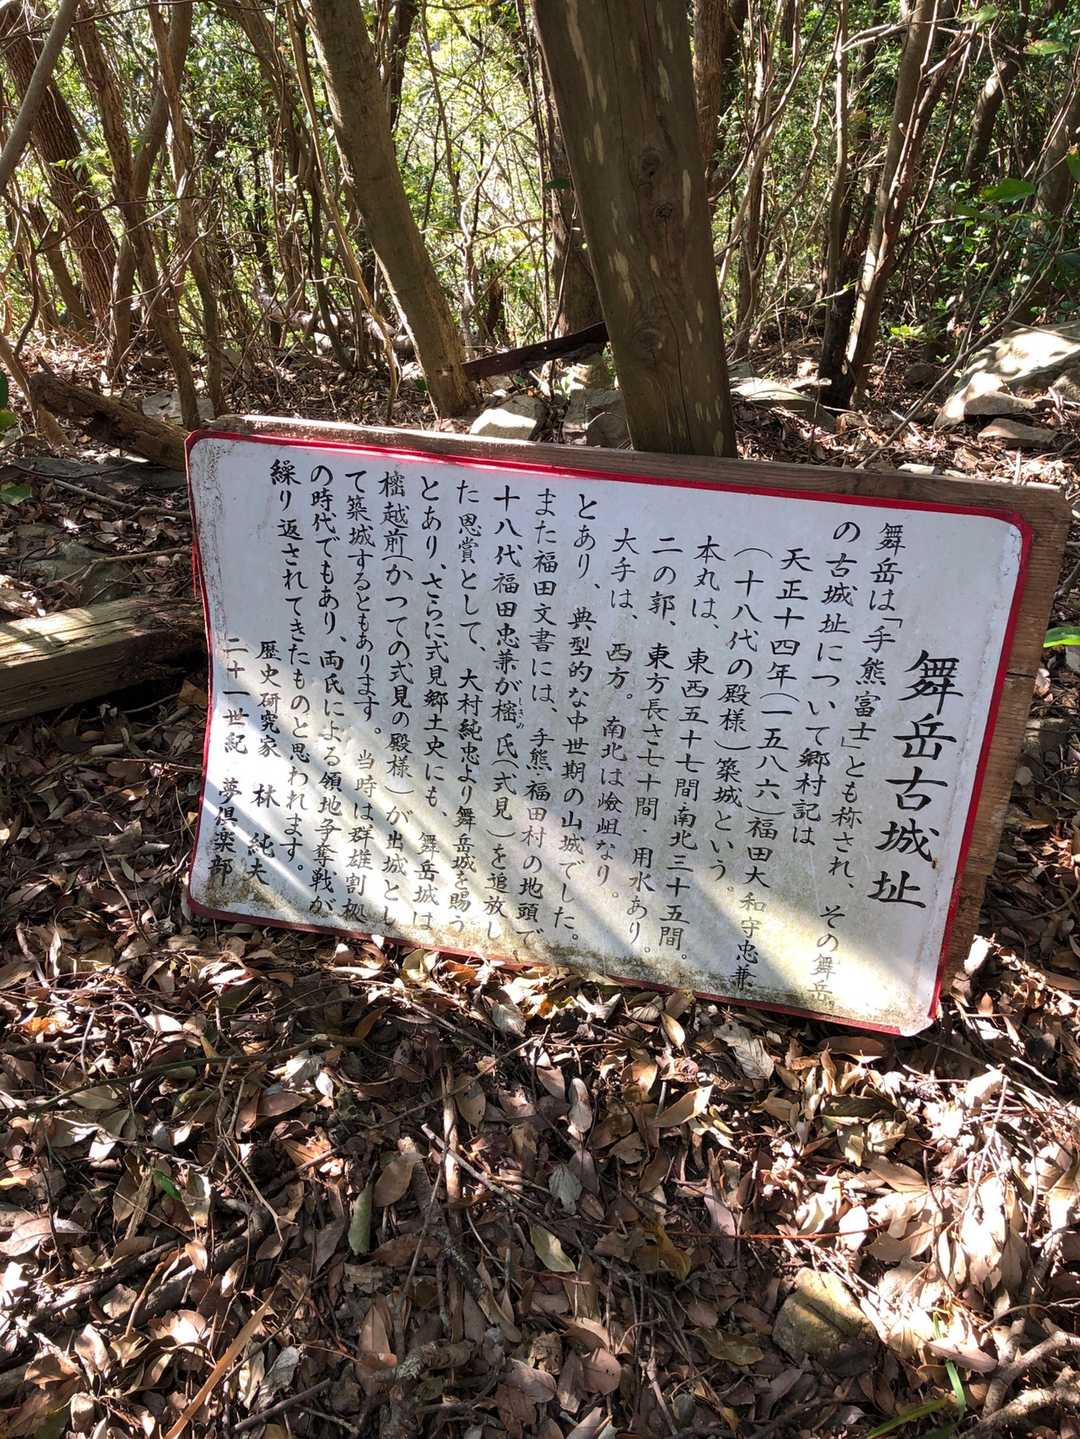 舞岳古城址
舞岳は「手熊富士」とも称され、その舞岳
の古城址について郷村記は
天正十四年(一五八六)福田大和守忠兼
(十八代の殿様)築城という。
本丸は、東西五十七間南北三十五間。
二の郭、東方長さ七十間・用水あり。
大手は、西方。南北は嶮岨なり。
とあり、典型的な中世期の山城でした。
また福田文書には、手熊・福田村の地頭で
十八代福田忠兼が樒氏(式見)を追放し
しきみ
た恩賞として、大村純忠より舞岳城を賜う
とあり、さらに式見郷土史にも、舞岳城は
樒越前(かつての式見の殿様)が出城とし
て築城するともあります。当時は群雄割拠
の時代でもあり、両氏による領地争奪戦が
繰り返されてきたものと思われます。
歴史研究家 林 純夫
二十一世紀 夢倶楽部